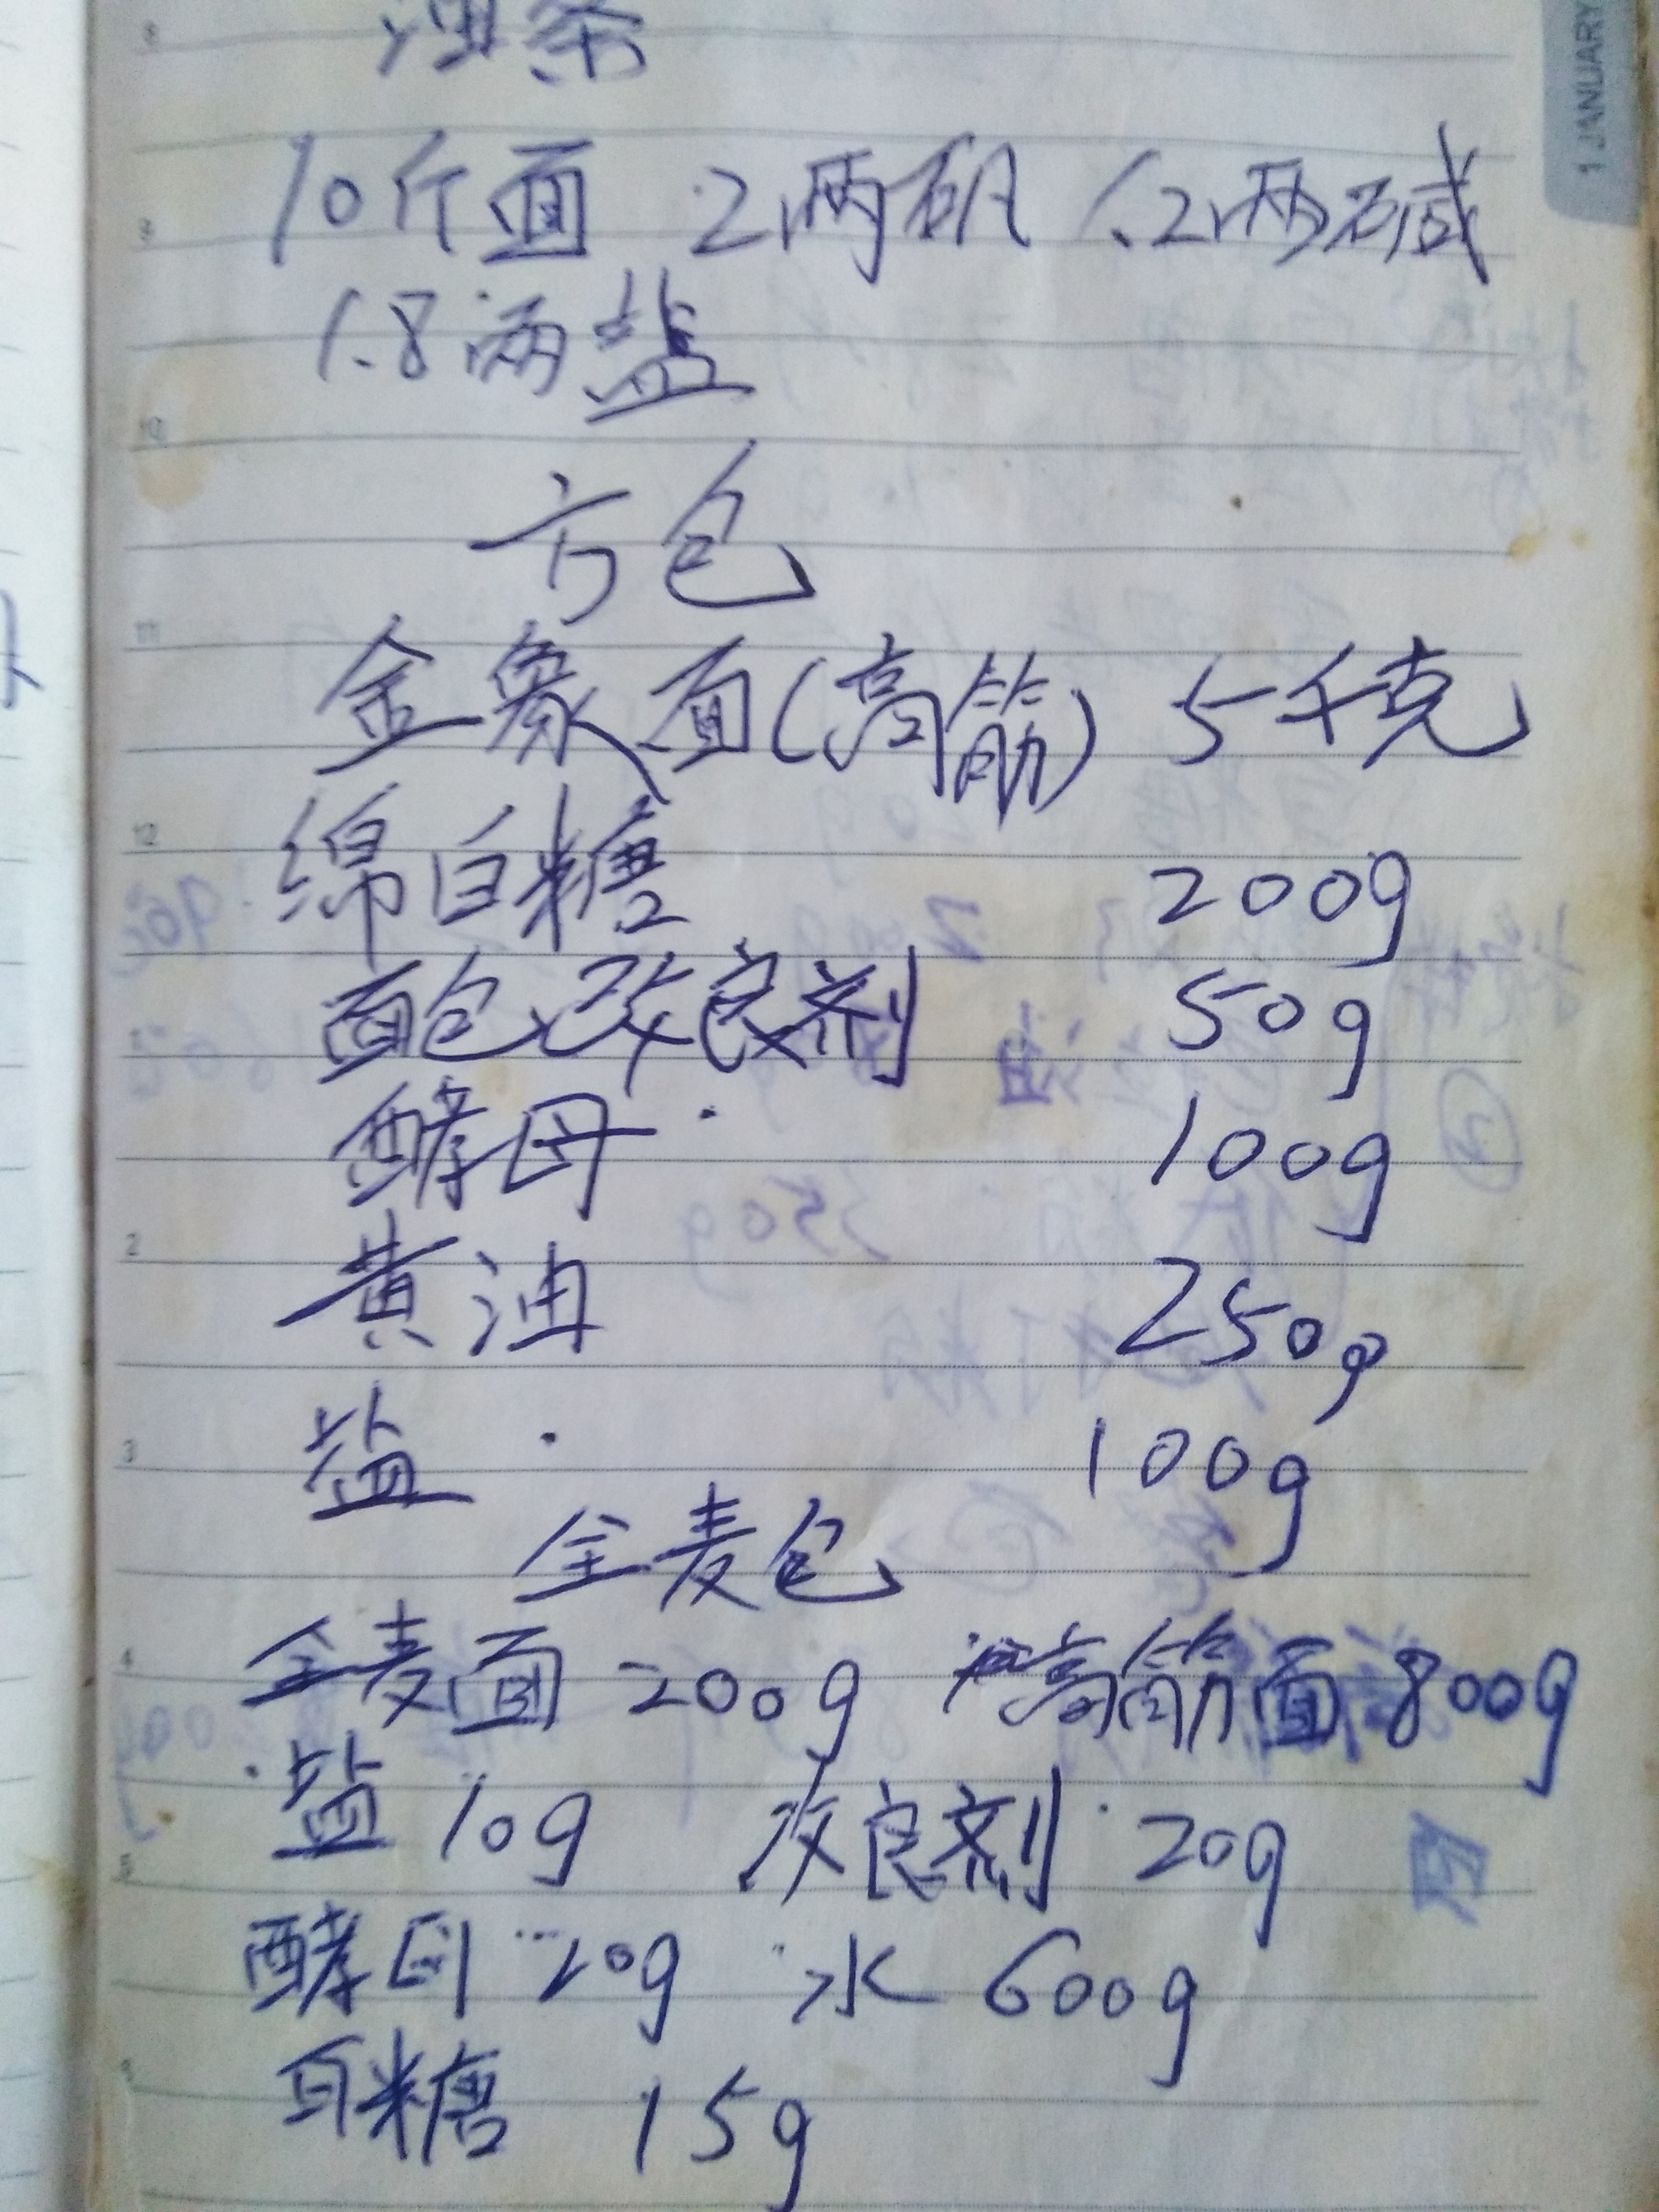 油条
10斤面 2两矾 1.2两碱
1.8两盐
方包
金象面(高筋) 5千克
绵白糖 200g
面包改良剂 50g
酵母 100g
黄油 250g
盐 100g
全麦包
全麦面 200g 高筋面 800g
盐 10g 改良剂 20g
酵母 20g 水 600g
白糖 15g
1 JANUARY
8
9
10
11
12
2
3
4
5
6